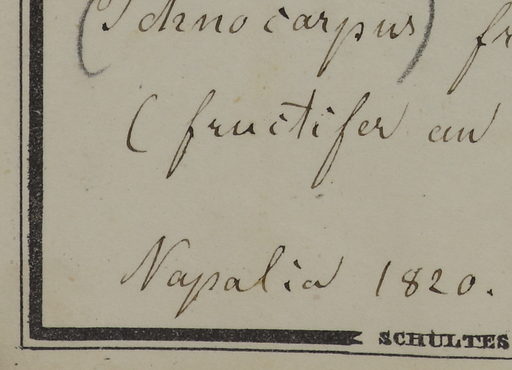 (Ichnocarpus) fr
(fructifer an
Napalia 1820.
SCHULTES